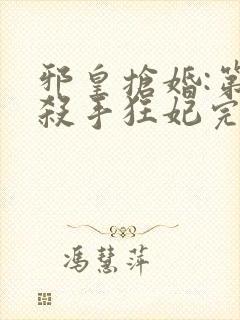 邪皇搶婚:第
殺手狂妃完
馮慧萍